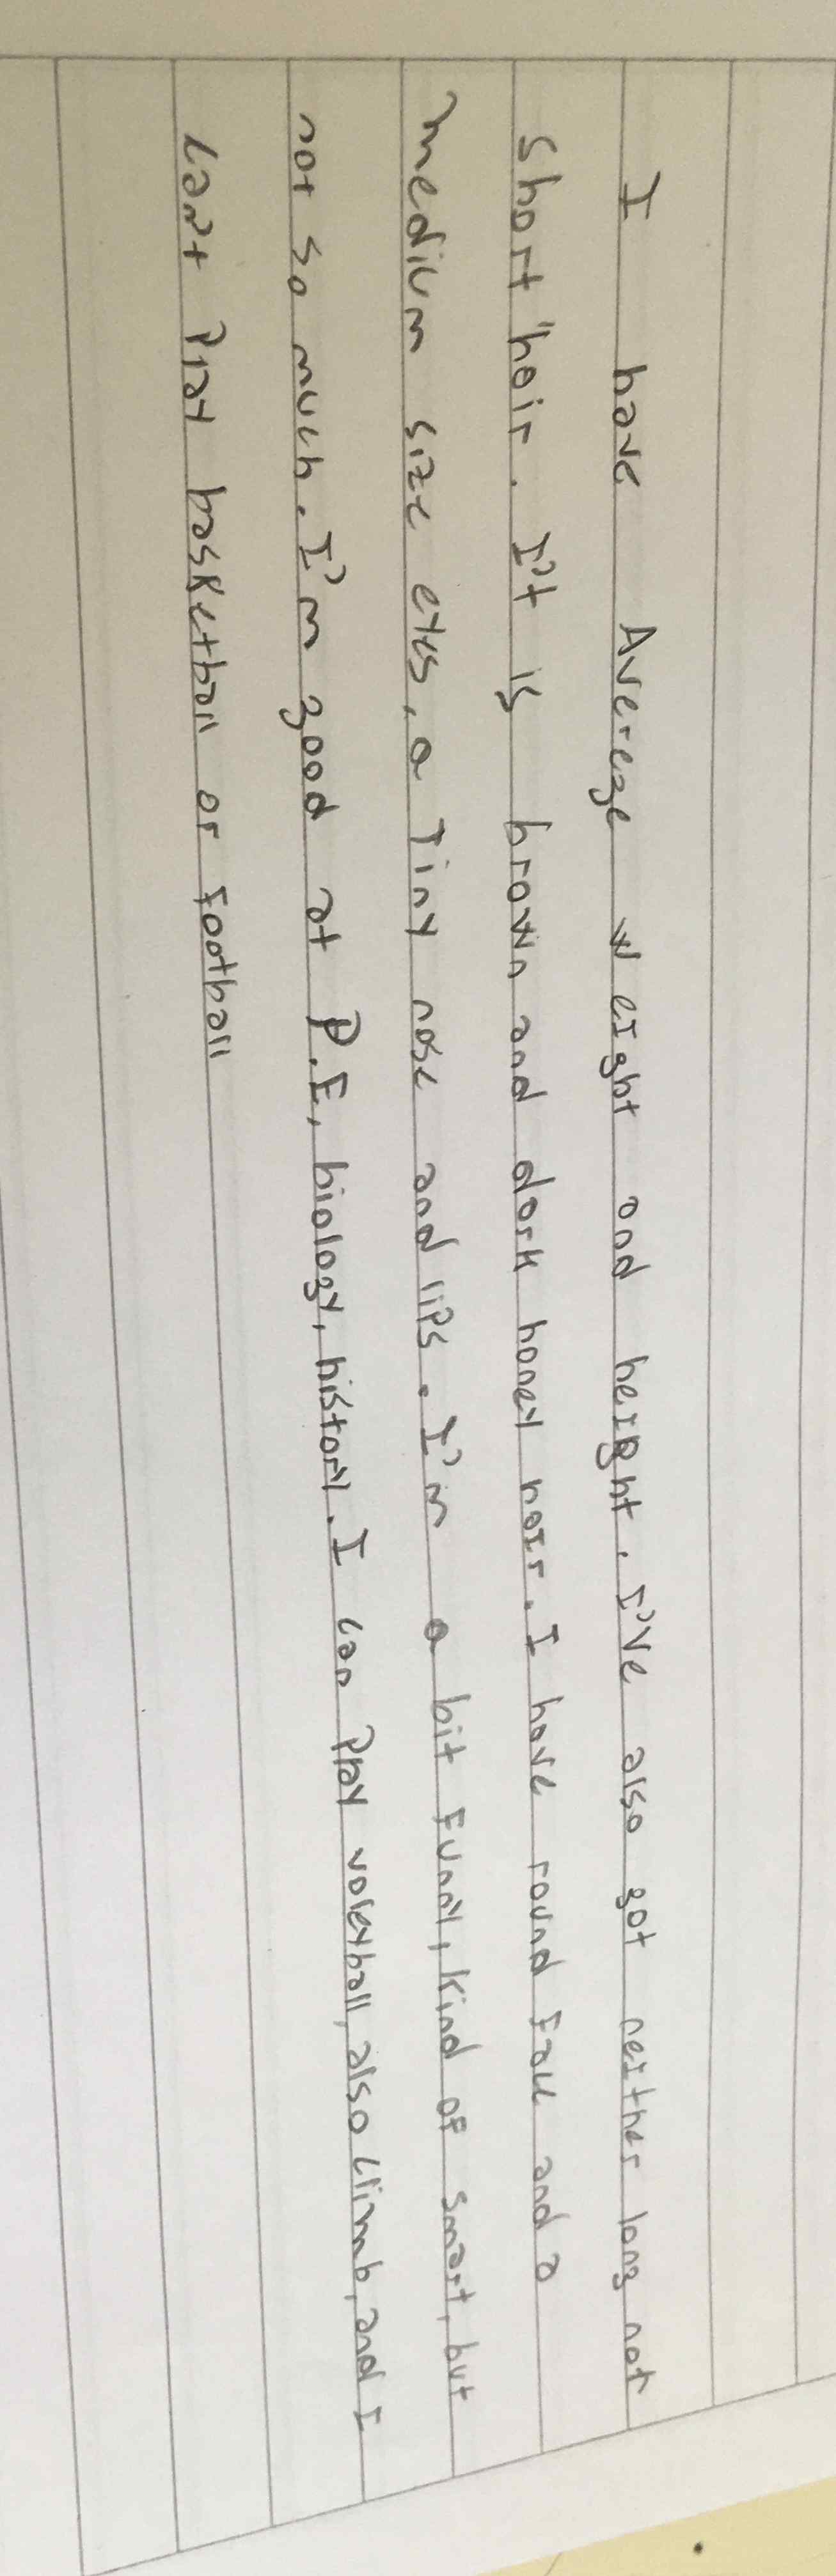 I have Averege weight and height. I've also got neither long not
short hair. I't is brown and dark honey hair. I have round face and a
medium size eyes, a Tiny nose and lips. I'm a bit funny, kind of smart, but
not so much. I'm good at P.E, biology, history. I can play voleyball, also climb, and I
can't play basketball or football